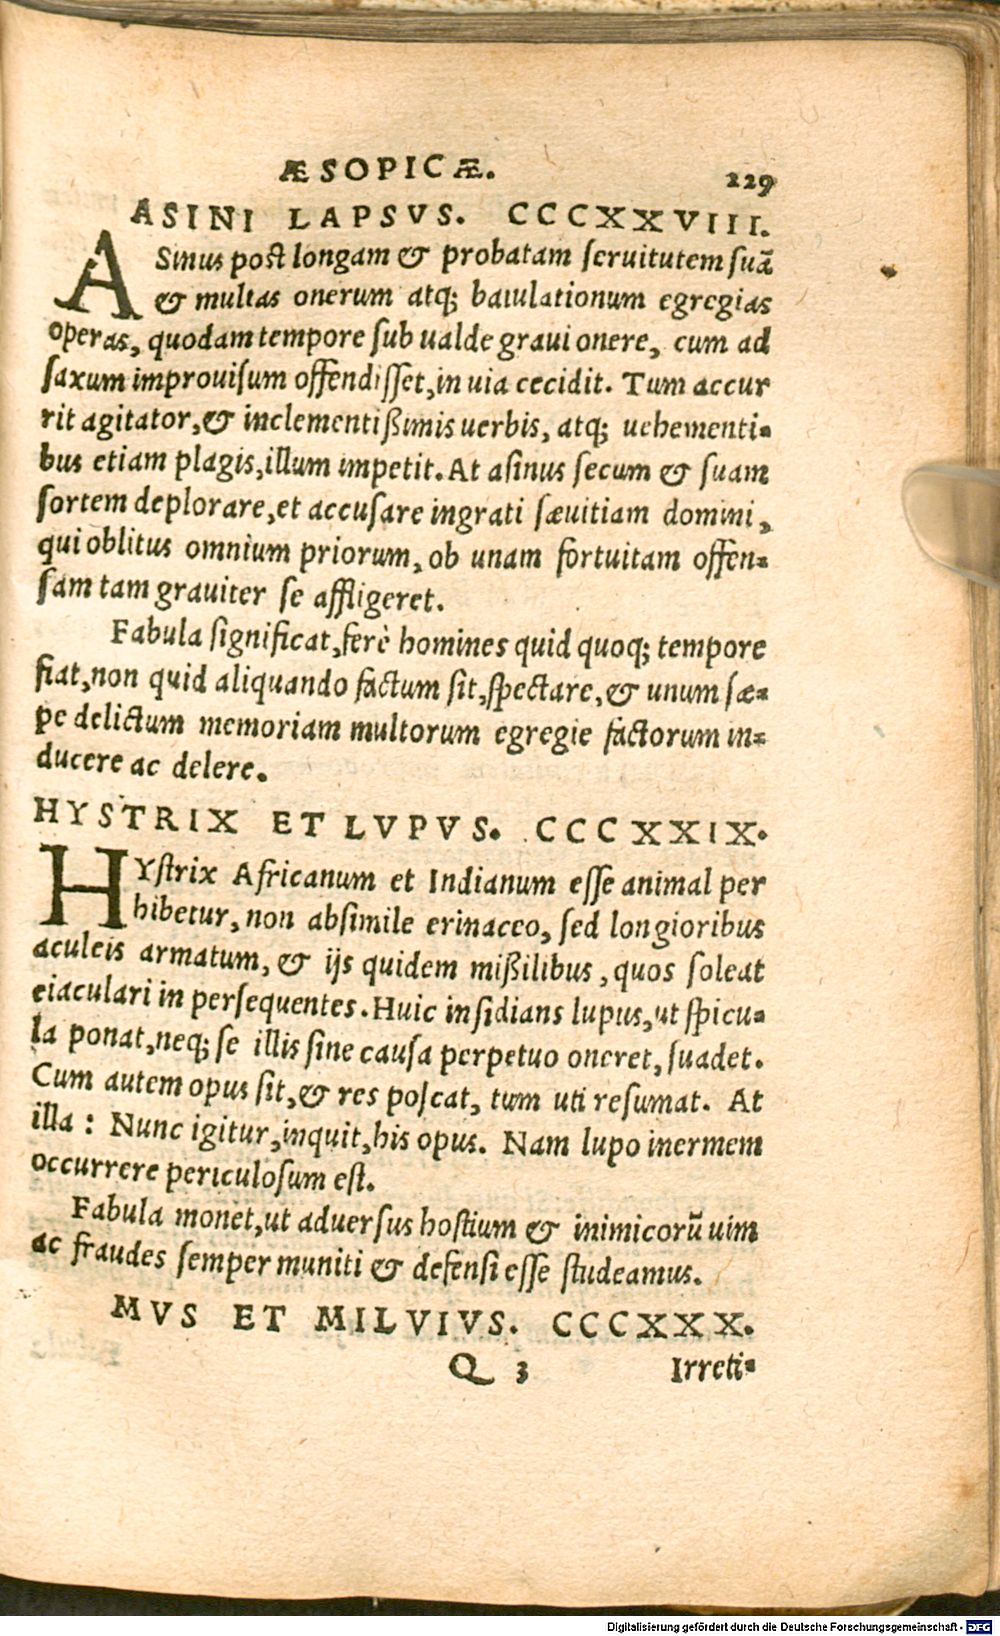 ÆSOPICÆ.
229
ASINI LAPSVS. CCCXXVIII.
ASinus post longam & probatam seruitutem suã
& multas onerum atq; baiulationum egregias
operas, quodam tempore sub ualde graui onere, cum ad
saxum improuisum offendisset, in uia cecidit. Tum accur
rit agitator, & inclementißimis uerbis, atq; uehementi-
bus etiam plagis, illum impetit. At asinus secum & suam
sortem deplorare, et accusare ingrati sæuitiam domini,
qui oblitus omnium priorum, ob unam fortuitam offen-
sam tam grauiter se affligeret.
Fabula significat, ferè homines quid quoq; tempore
fiat, non quid aliquando factum sit, spectare, & unum sæ-
pe delictum memoriam multorum egregie factorum in-
ducere ac delere.
HYSTRIX ET LVPVS. CCCXXIX.
HYstrix Africanum et Indianum esse animal per
hibetur, non absimile erinaceo, sed longioribus
aculeis armatum, & ijs quidem mißilibus, quos soleat
eiaculari in persequentes. Huic insidians lupus, ut spicu-
la ponat, neq; se illis sine causa perpetuo oneret, suadet.
Cum autem opus sit, & res poscat, tum uti resumat. At
illa: Nunc igitur, inquit, his opus. Nam lupo inermem
occurrere periculosum est.
Fabula monet, ut aduersus hostium & inimicorũ uim
ac fraudes semper muniti & defensi esse studeamus.
MVS ET MILVIVS. CCCXXX.
Q 3
Irreti-
Digitalisierung gefördert durch die Deutsche Forschungsgemeinschaft - DFG